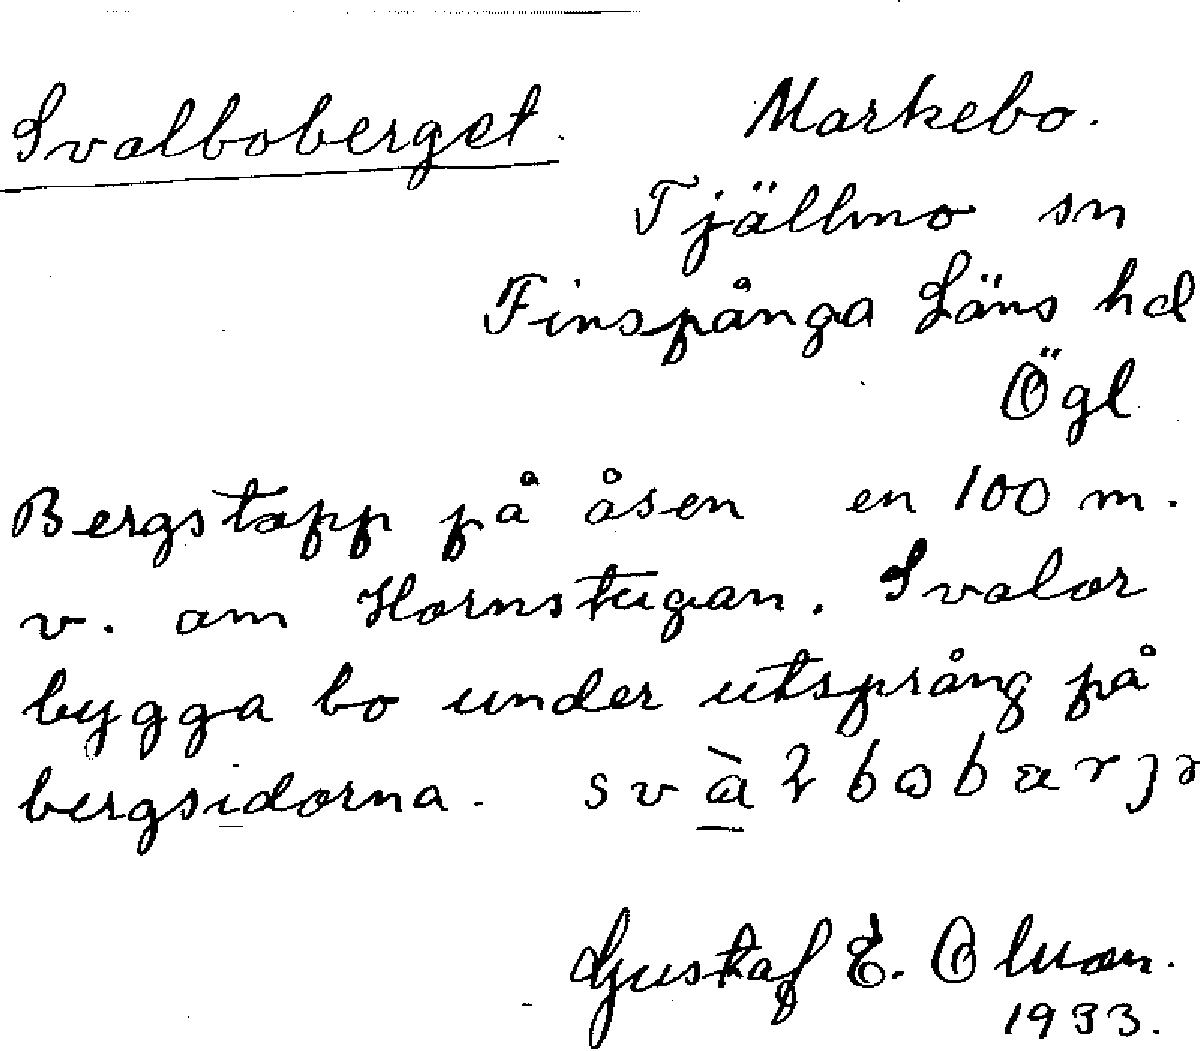 Svalboberget. Markebo.
Tjällmo sn
Finspånga Läns hd
Ögl
Bergstapp på åsen en 100 m.
v. om Hornstugan. Svalor
bygga bo under utsprång på
bergsidorna.
Gustaf E. Olsson.
1933.